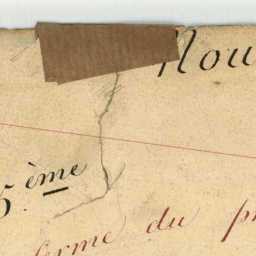 Nou
5.ème
ferme du pr